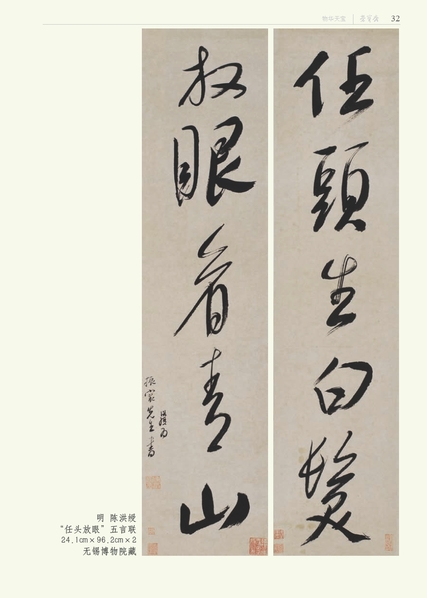 物华天宝 | 32
任頭生白髮
放眼看青山
明 陈洪绶
“任头放眼” 五言联
24.1cm×96.2cm×2
无锡博物院藏